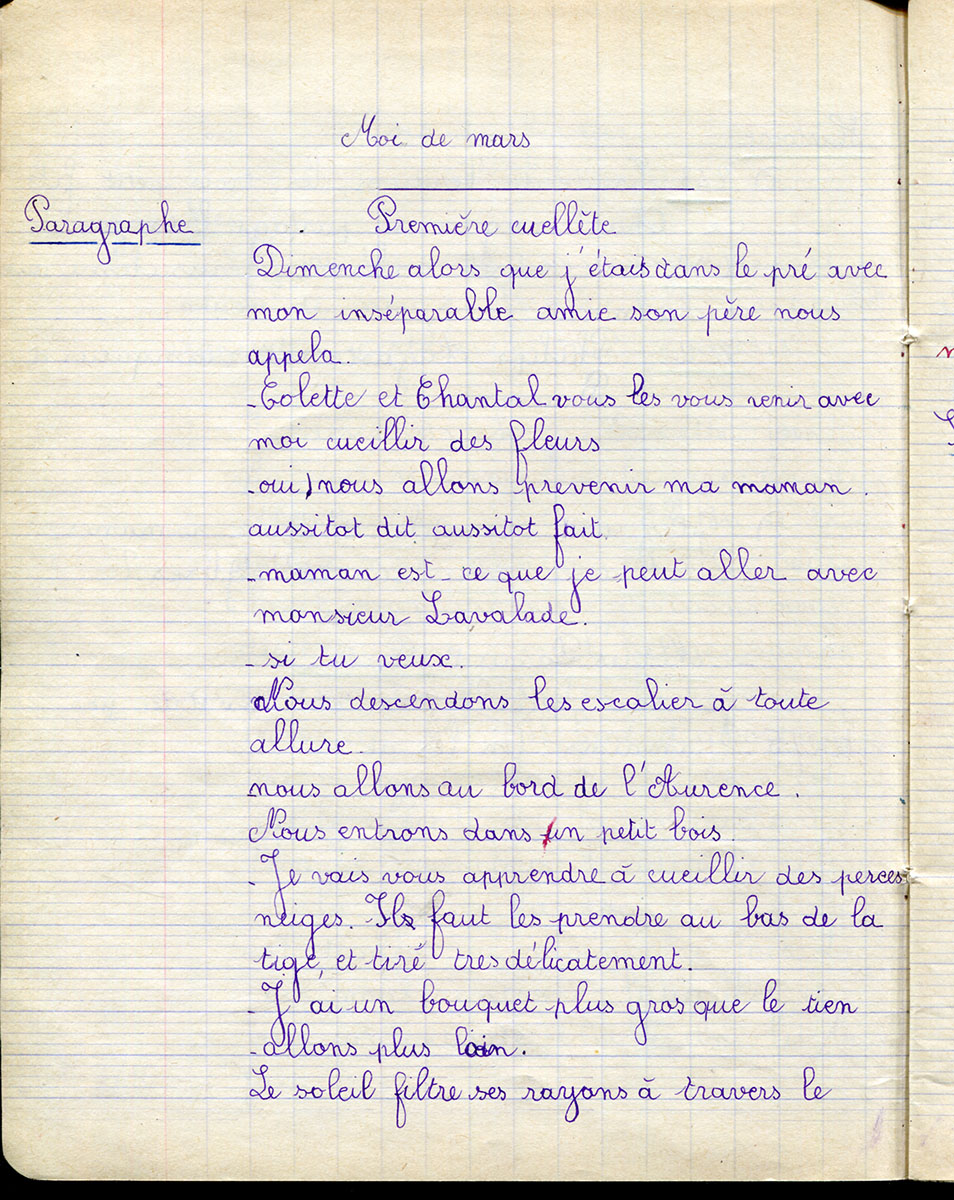 Moi de mars
Paragraphe
Première cuellète
Dimenche alors que j'étais dans le pré avec
mon inséparable amie son père nous
appela.
-Colette et Chantal vous les vous venir avec
moi cueillir des fleurs
-oui, nous allons prevenir ma maman.
aussitot dit aussitot fait.
-maman est-ce que je peut aller avec
monsieur Lavalade.
-si tu veux.
Nous descendons les escalier à toute
allure.
nous allons au bord de l'Aurence.
Nous entrons dans un petit bois.
-Je vais vous apprendre à cueillir des perces
neiges. Il faut les prendre au bas de la
tige, et tiré tres délicatement.
-J'ai un bouquet plus gros que le tien
-allons plus loin.
Le soleil filtre ses rayons à travers le